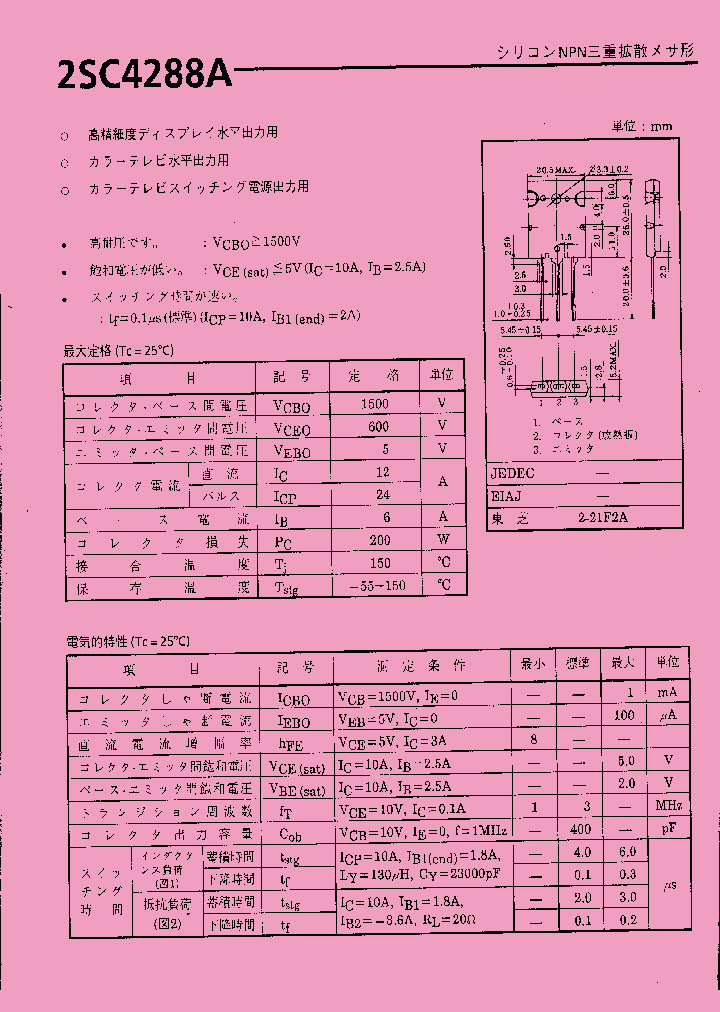 2SC4288A
シリコンNPN三重拡散メサ形
○ 高精細度ディスプレイ水平出力用
○ カラーテレビ水平出力用
○ カラーテレビスイッチング電源出力用
• 高耐圧です。 : VCBO≧1500V
• 飽和電圧が低い。 : VCE (sat)≦5V (IC=10A, IB=2.5A)
• スイッチング時間が速い。
: tf=0.1μs (標準) (ICP=10A, IB1 (end)=2A)
単位：mm
20.5MAX. ø3.3±0.2
6.0 4.0 2.0 11.0 26.0±0.5
1.5
2.50
2.5
3.0
1.5 20.0±0.6 2.0
+0.3
1.0-0.25
5.45±0.15 5.45±0.15
+0.25
0.6-0.10
1.5 2.8 5.2MAX.
1 2 3
1. ベース
2. コレクタ (放熱板)
3. エミッタ
JEDEC —
EIAJ —
東芝 2-21F2A
最大定格 (Tc = 25℃)
項 目 記 号 定 格 単位
コレクタ・ベース間電圧 VCBO 1500 V
コレクタ・エミッタ間電圧 VCEO 600 V
エミッタ・ベース間電圧 VEBO 5 V
コレクタ電流 直流 IC 12 A
パルス ICP 24
ベース電流 IB 6 A
コレクタ損失 PC 200 W
接合温度 Tj 150 ℃
保存温度 Tstg −55~150 ℃
電気的特性 (Tc = 25℃)
項 目 記 号 測 定 条 件 最小 標準 最大 単位
コレクタしゃ断電流 ICBO VCB=1500V, IE=0 — — 1 mA
エミッタしゃ断電流 IEBO VEB=5V, IC=0 — — 100 μA
直流電流増幅率 hFE VCE=5V, IC=3A 8 — —
コレクタ・エミッタ間飽和電圧 VCE (sat) IC=10A, IB=2.5A — — 5.0 V
ベース・エミッタ間飽和電圧 VBE (sat) IC=10A, IB=2.5A — — 2.0 V
トランジション周波数 fT VCE=10V, IC=0.1A 1 3 — MHz
コレクタ出力容量 Cob VCB=10V, IE=0, f=1MHz — 400 — pF
スイッチング時間 インダクタンス負荷 (図1) 蓄積時間 tstg ICP=10A, IB1(end)=1.8A, — 4.0 6.0 μs
下降時間 tf LY=130μH, CY=23000pF — 0.1 0.3
抵抗負荷 (図2) 蓄積時間 tstg IC=10A, IB1=1.8A, — 2.0 3.0
下降時間 tf IB2=−3.6A, RL=20Ω — 0.1 0.2